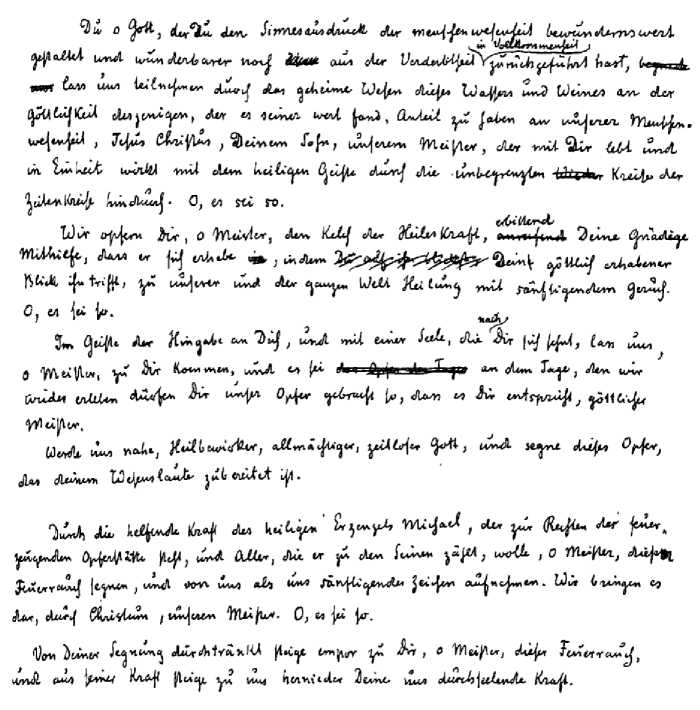 Du o Gott, der Du den Sinnesausdruck der Menschenwesenheit bewundernswert
in Vollkommenheit
gestaltet und wunderbarer noch aus der Verderbtheit zurückgeführt hast,
lass uns teilnehmen durch das geheime Wesen dieses Wassers und Weines an der
Göttlichkeit desjenigen, der es seiner wert fand, Anteil zu haben an unserer Menschen-
wesenheit, Jesus Christus, Deinem Sohn, unserem Meister, der mit Dir lebt und
in Einheit wirkt mit dem heiligen Geiste durch die unbegrenzten Kreise der
Zeitenkreise hindurch. O, es sei so.
Wir opfern Dir, o Meister, den Kelch der Heileskraft, erbittend Deine Gnädige
Mithilfe, dass er sich erhebe, indem Dein göttlich erhabener
Blick ihn trifft, zu unserer und der ganzen Welt Heilung mit sänftigendem Geruch.
O, es sei so.
Im Geiste der Hingabe an Dich, und mit einer Seele, die nach Dir sich sehnt, lass uns,
o Meister, zu Dir kommen, und es sei an dem Tage, den wir
wieder erleben dürfen Dir unser Opfer gebracht so, dass es Dir entspricht, göttlicher
Meister.
Werde uns nahe, Heilbewirker, allmächtiger, zeitloser Gott, und segne dieses Opfer,
das deinem Wesenslaute zubereitet ist.
Durch die helfende Kraft des heiligen Erzengels Michael, der zur Rechten der feuer-
zeugenden Opferstätte steht, und Aller, die er zu den Seinen zählt, wolle, o Meister, diesen
Feuerrauch segnen, und von uns als uns sänftigendes Zeichen aufnehmen. Wir bringen es
dar, durch Christum, unseren Meister. O, es sei so.
Von Deiner Segnung durchtränkt steige empor zu Dir, o Meister, dieser Feuerrauch,
und aus seiner Kraft steige zu uns hernieder Deine uns durchseelende Kraft.